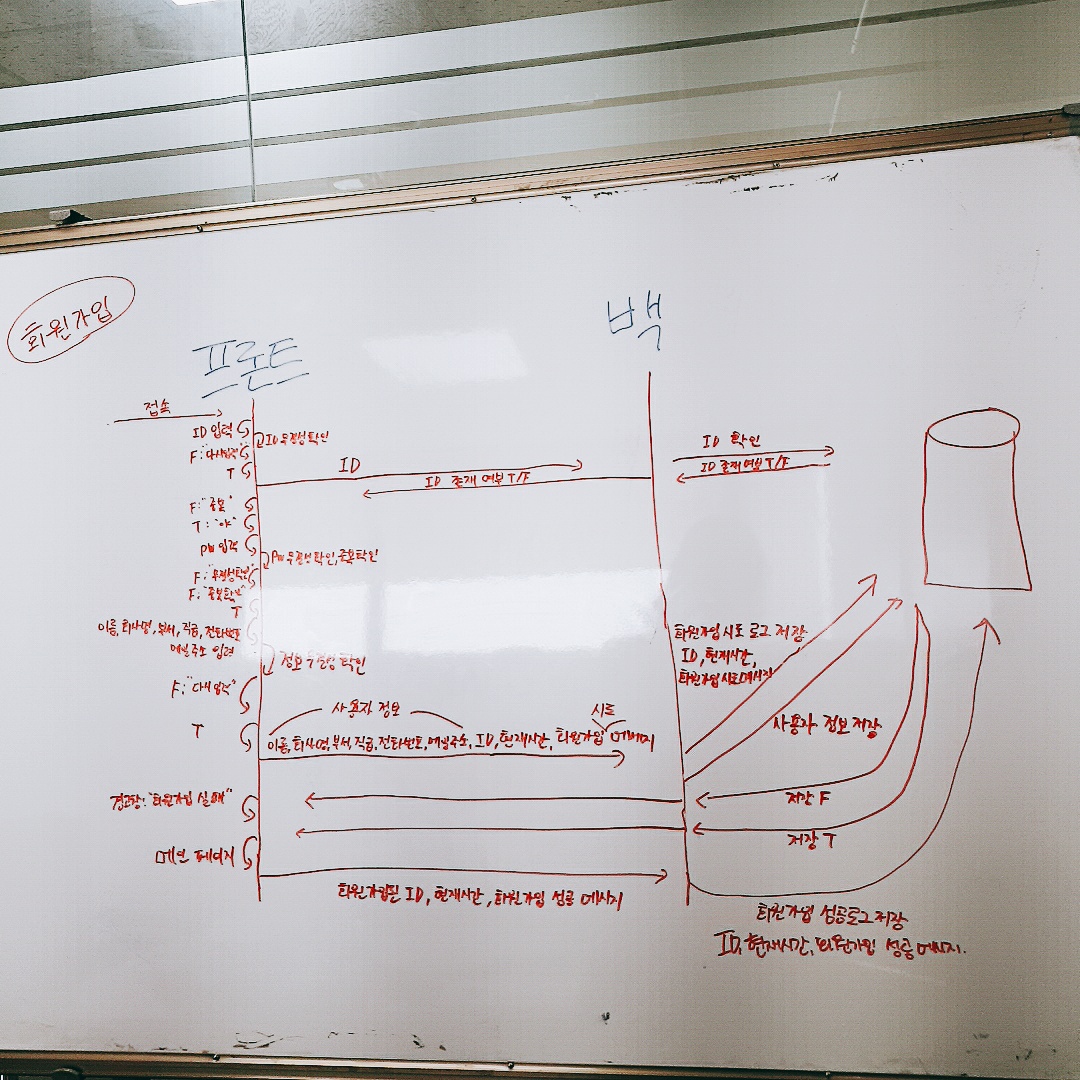 회원가입
프론트
백
접속
ID 입력
ID 무결성 확인
F: "다시입력"
T
ID
ID 존재 여부 T/F
ID 확인
ID 존재 여부 T/F
F: "중복"
T:
PW 입력
PW 무결성 확인, 중복확인
F: "무결성확인"
F: "중복확인"
T
이름, 회사명, 부서, 직급, 전화번호
메일주소 입력
정보 무결성 확인
F: "다시입력"
T
사용자 정보
시도
이름, 회사명, 부서, 직급, 전화번호, 메일주소, ID, 현재시간, 회원가입 메시지
회원가입시도 로그 저장
ID, 현재시간,
회원가입 시도메시지
사용자 정보 저장
저장 F
저장 T
경고창: "회원가입 실패"
메인 페이지
회원가입된 ID, 현재시간, 회원가입 성공 메시지
회원가입 성공로그 저장
ID, 현재시간, 회원가입 성공 메시지.